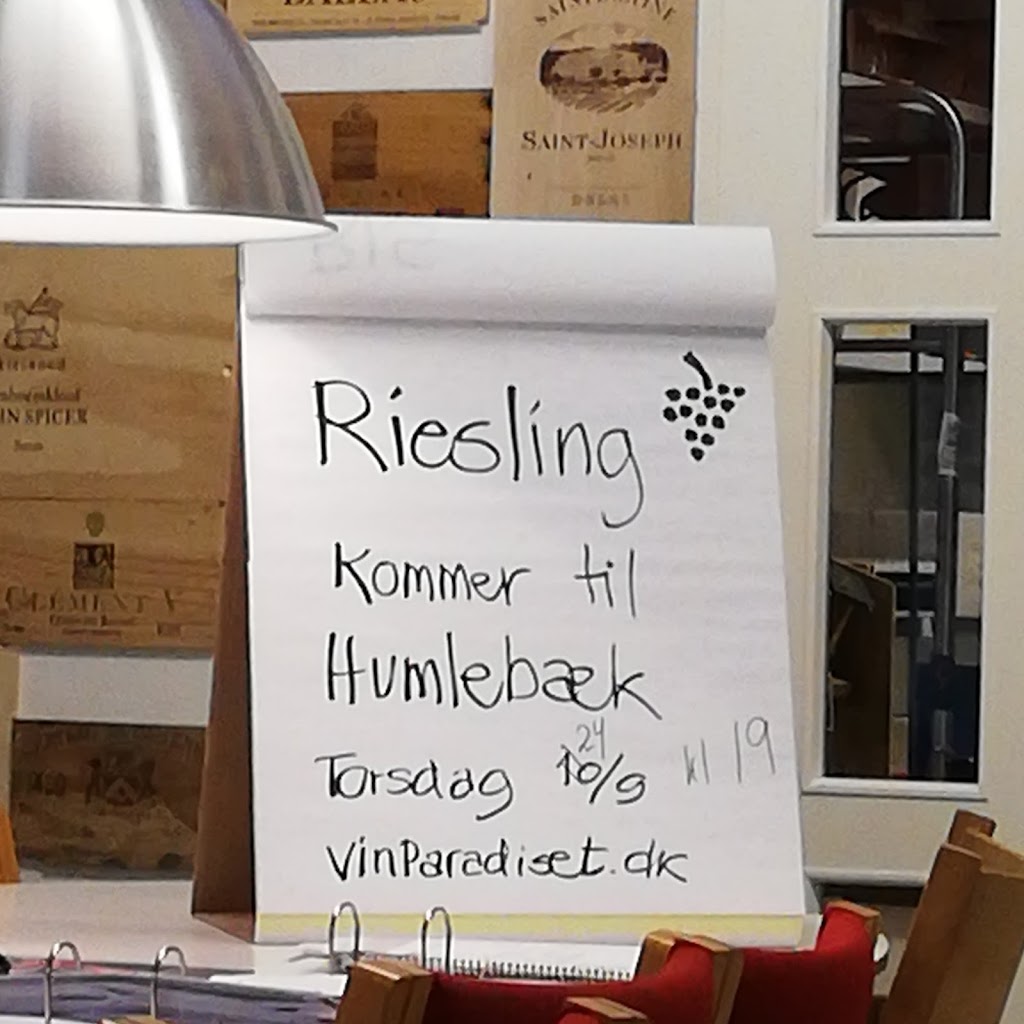 SAINT-JOSEPH
Riesling
kommer til
Humlebæk
24
Torsdag 10/9 kl 19
vinParadiset.dk
IN SPICER
CLEMENT V